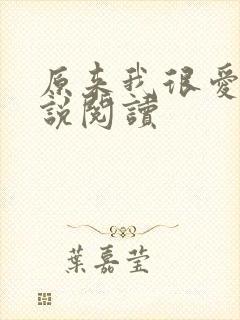 原來我很愛
說閱讀
葉嘉瑩